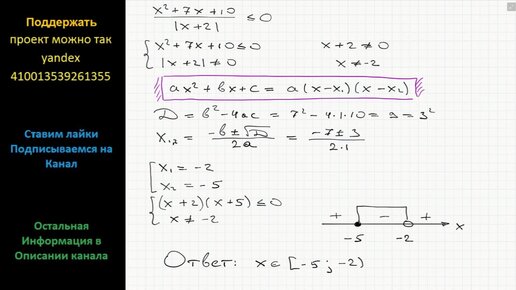 Поддержать
проект можно так
yandex
410013539261355
Ставим лайки
Подписываемся на
Канал
Остальная
Информация в
Описании канала
x²+7x+10 / |x+2| ≤ 0
{ x²+7x+10 ≤ 0    x+2 ≠ 0
|x+2| ≠ 0    x ≠ -2
ax²+bx+c = a(x-x₁)(x-x₂)
D = b²-4ac = 7²-4·1·10 = 9 = 3²
x₁,₂ = (-b±√D)/2a = (-7±3)/2·1
[ x₁ = -2
x₂ = -5
{ (x+2)(x+5) ≤ 0
x ≠ -2
+ - +
-5 -2 x
Ответ: x∈[-5; -2)